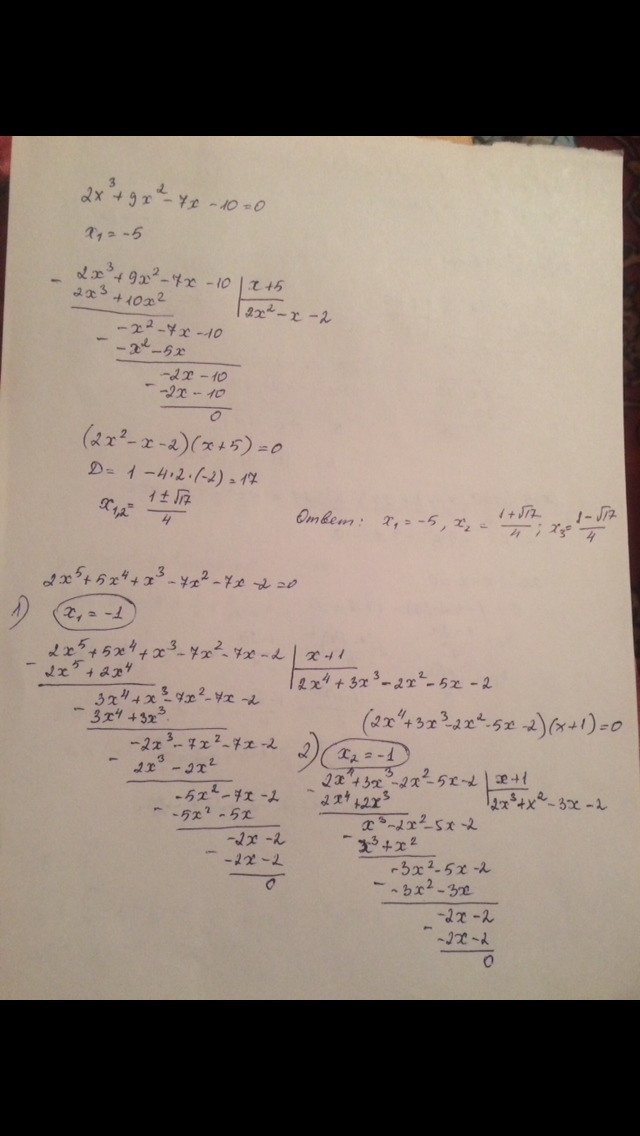 2x³ + 9x² - 7x - 10 = 0
x₁ = -5
- 2x³ + 9x² - 7x - 10 | x + 5
2x³ + 10x² | 2x² - x - 2
- -x² - 7x - 10
-x² - 5x
- -2x - 10
-2x - 10
0
(2x² - x - 2)(x + 5) = 0
D = 1 - 4·2·(-2) = 17
x₁,₂ = (1 ± √17)/4
Ответ: x₁ = -5, x₂ = (1 + √17)/4; x₃ = (1 - √17)/4
2x⁵ + 5x⁴ + x³ - 7x² - 7x - 2 = 0
1) x₁ = -1
- 2x⁵ + 5x⁴ + x³ - 7x² - 7x - 2 | x + 1
2x⁵ + 2x⁴ | 2x⁴ + 3x³ - 2x² - 5x - 2
- 3x⁴ + x³ - 7x² - 7x - 2
3x⁴ + 3x³
- -2x³ - 7x² - 7x - 2
2x³ - 2x²
- -5x² - 7x - 2
-5x² - 5x
- -2x - 2
-2x - 2
0
(2x⁴ + 3x³ - 2x² - 5x - 2)(x + 1) = 0
2) x₂ = -1
- 2x⁴ + 3x³ - 2x² - 5x - 2 | x + 1
2x⁴ + 2x³ | 2x³ + x² - 3x - 2
- x³ - 2x² - 5x - 2
x³ + x²
- -3x² - 5x - 2
-3x² - 3x
- -2x - 2
-2x - 2
0